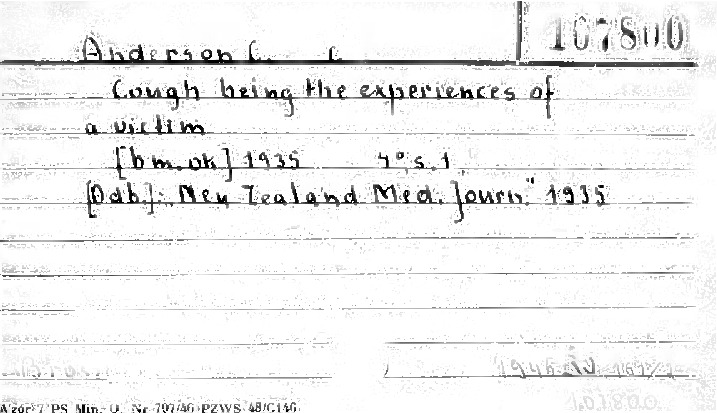 167800
Anderson C. C.
Cough being the experiences of
a victim
[b m. ok] 1935 4° s. 1
[Odb.]: „New Zealand Med. Journ." 1935
1946
Wzór 7 PS Min. O. Nr 797/46 PZWS 48/C146